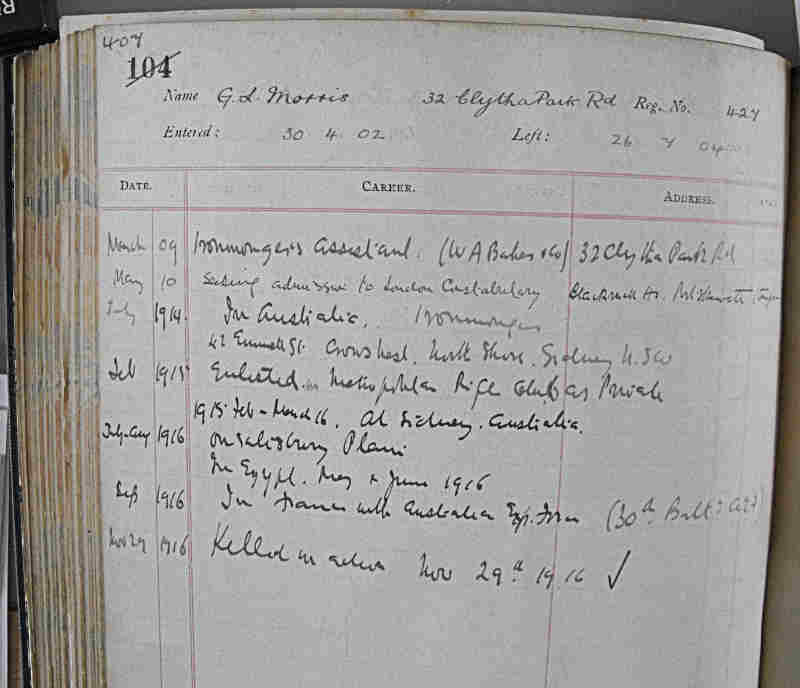 407
104
Name G. L. Morris 32 Clytha Park Rd Reg. No. 427
Entered: 30 4 02 Left: 26 7 04
DATE. CAREER. ADDRESS.
March 09 Ironmongers Assistant. (W A Baker & Co) 32 Clytha Park Rd
May 10 Seeking admission to London Constabulary
July 1914 In Australia. Ironmonger
42 Emmett St. Crows Nest. North Shore. Sidney N.S.W
Feb 1915 Enlisted in Metropolitan Rifle Club as Private
1915 Feb - March 16. At Sidney. Australia.
July-Aug 1916 On Salisbury Plain
In Egypt. May & June 1916
Sep 1916 In France with Australian Exp. Force (30th Batt:
Nov 29 1916 Killed in action Nov 29th 1916 ✓